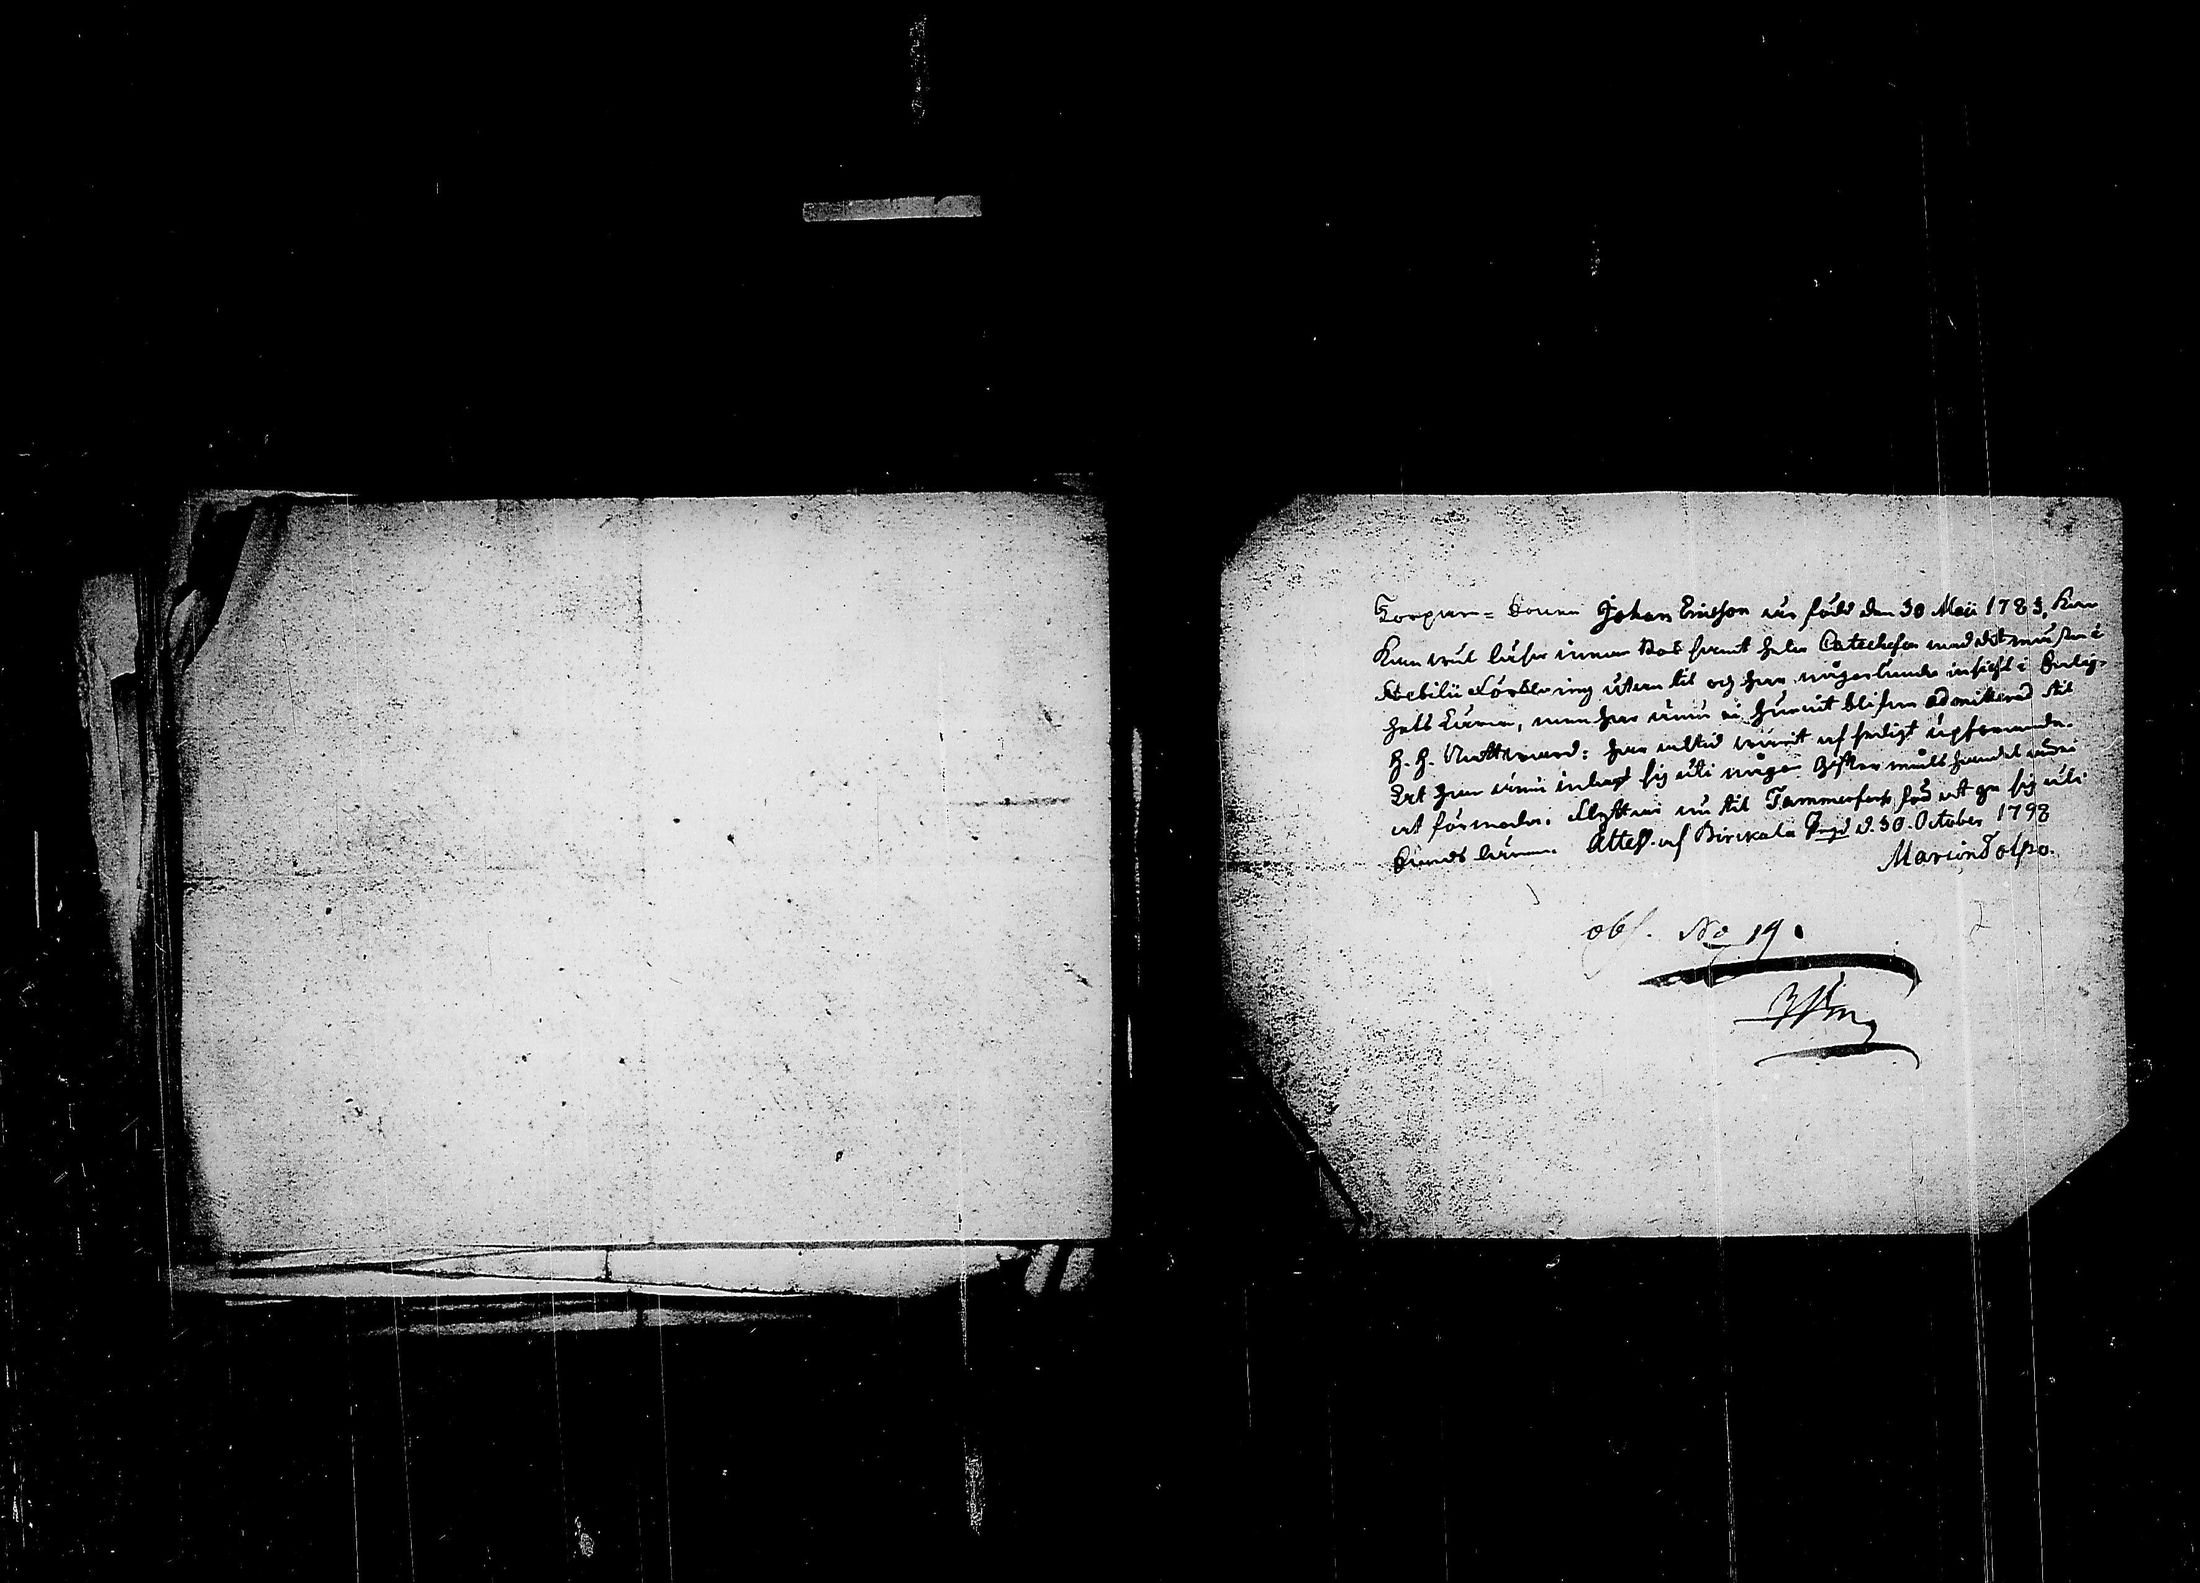 Torpare-Sonen Johan Ericsson är född den 30 Maii 1783, han
kan wäl läsa innan Bok samt hela Catechesen med det mästa i
Svebilii Förklaring utan til och har någorlunda insigt i Salig-
hets Läran, men har ännu ej hunnit blifwa admitterad til
H. H. Nattward: har altid warit af fredligt upförande.
Lät han ännu inlagt sig uti något giftermåls handel
at förmoda. Flyttar nu til Tammerfors för at ge sig uti
Lära. Attest. af Birckala d. 30. October 1798
Martin Tolpo.
obs. No 19.